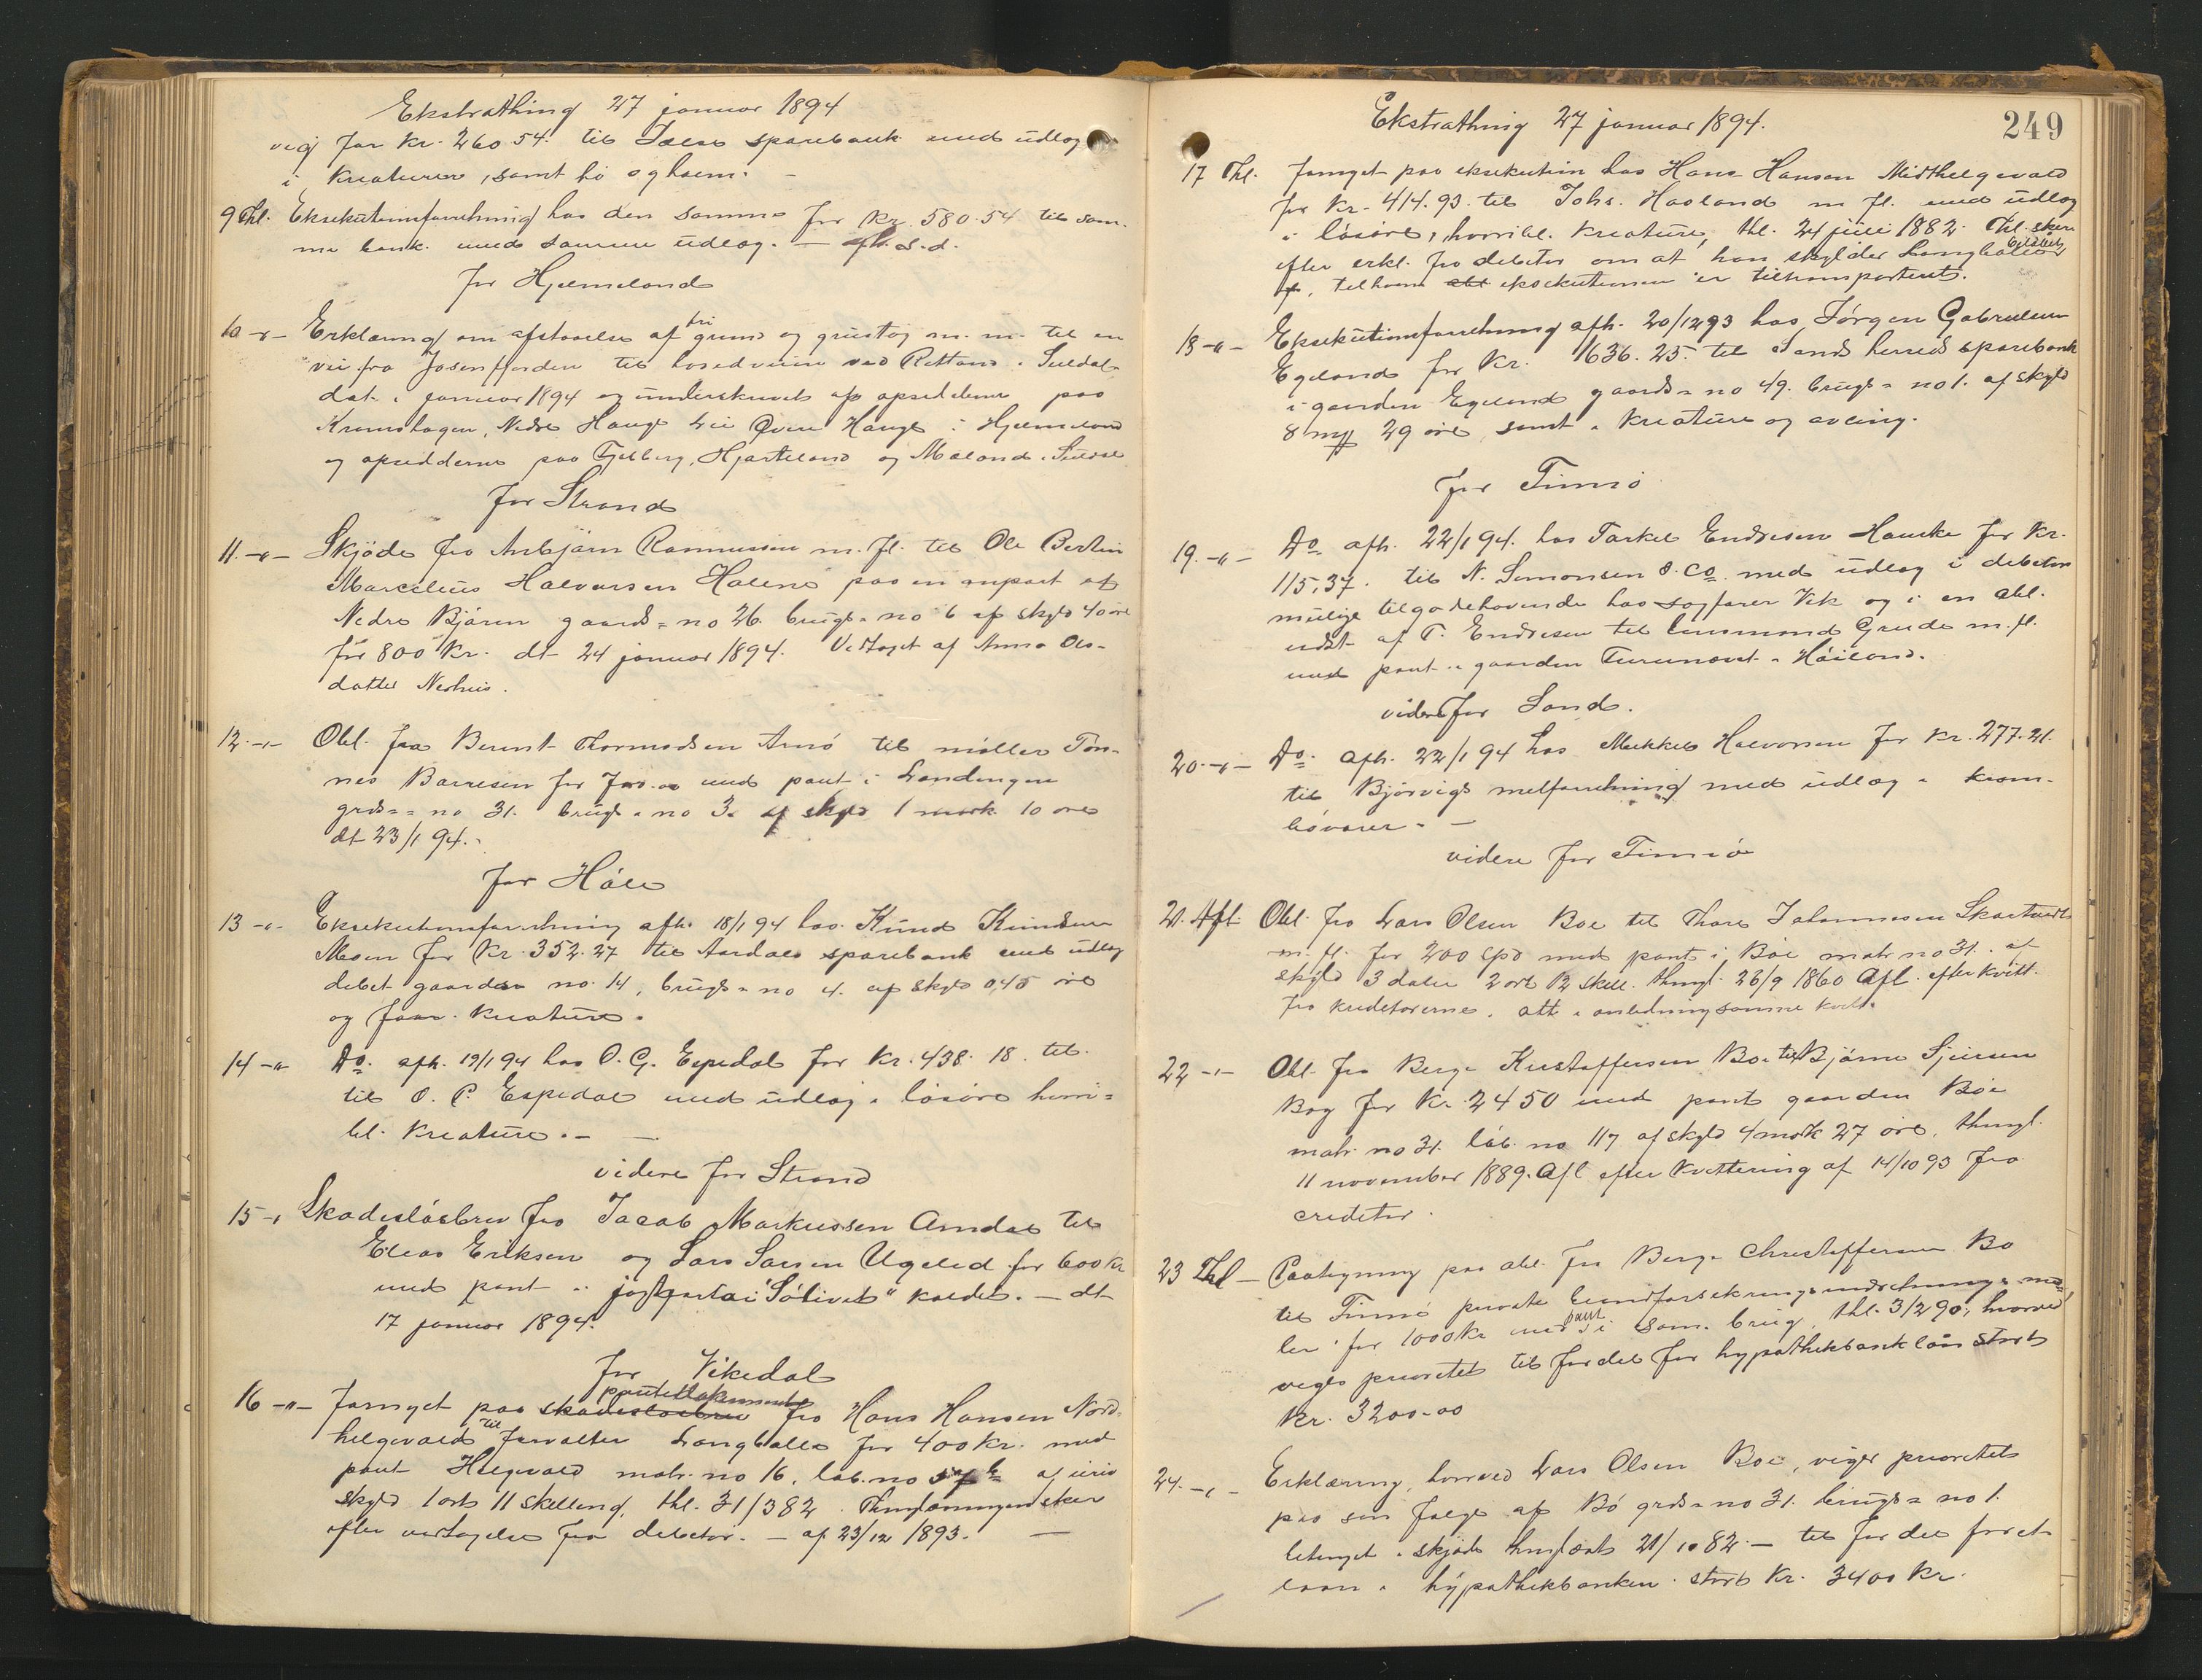 Ekstrathing 27 januar 1894
vig for kr. 260.54. til Jælse sparebank med udlæg
i kreaturer, samt hø og haem. –
9 Thl. Eksekutionsforretning hos den samme for kr 580.54 til sam-
me bank. med samme udlæg. – afh. s. d.
for Hjelmeland
10 -"- Erklæring om afstaaelse af fri grund og grustag m. m. til en
vei fra Jøsenfjorden til hovedveien ved Rettand i Suldal
dat. i januar 1894 og underskrevet af opsidderne paa
Kromshagen, Nedre Hauge Lie Øvre Hauge i Hjelmeland
og opsidderne paa Fjelberg, Hjorteland og Mæland i Suldal
for Strand
11. -"- Skjøde fra Asbjørn Rasmussen m. fl. til Ole Bertin
Marcelius Halvorsen Holene paa en anpart af
Nedre Bjøren gaards-no 26. brugs-no 6 af skyld 40 øre
for 800 kr. dt 24 januar 1894. Vedtaget af Anna Ols-
datter Nerhus.
12. -"- Obl. fra Bernt Thormodsen Amø til møller Tøn-
nes Barresen for 700.00 med pant i Landingene
grds-no 31. brugs-no 3. af skyld 1 mark 10 øre
dt 23/1 94. –
for Høle
13 -"- Eksekutionsforretning afh. 18/1 94 hos Knud Knudsen
Moen for kr. 352.27 til Aardals sparebank med udlæg
debet gaarden no. 14, brugs-no 4. af skyld 0,45 øre
og faar. kreature.
14 -"- Do. afh. 19/1 94 hos O. G. Espedal for kr. 438. 18. til
til O. P. Espedal med udlæg i løsøre hvori-
bl. kreature. –
videre for Strand
15 -" Skadesløsbrev fra Jacob Markussen Amdal til
Elias Eriksen og Lars Larsen Ugelid for 600 kr
med pant i jagtgaleai "Sølivet" kaldet. – dt
17 januar 1894.
for Vikedal
16 -"- Fornyet paa skadesløsbrev pantedokument fra Hans Hansen Nord-
helgevold til forvalter Langballe for 400 kr. med
pant Helgevold matr. no 16, løb. no 57 b af urev
skyld 1 ort 11 skilling, thl. 31/3 82. Thinglæsningen sker
efter vedtagelse fra debetor. – af 23/12 1893. –
249
Ekstrathing 27 januar 1894.
17 Thl. Fornyet paa eksekution hos Hans Hansen Midthelgevold
for kr. 414.93 til Johs. Haaland m fl. med udlæg
i løsøre, hvoribl. kreature, thl. 24 juli 1882. Thl. sker
efter erkl. fra debitor om at han skylder Langballe beløbet
til hvem eksekutionen er tiltransporteret.
18 -"- Eksekutionsforretning afh. 20/12 93 hos Jørgen Gabrielsen
Egeland for kr. 1636. 25. til Sands herreds sparebank
i gaarden Egeland gaards-no 49. brugs-no 1. af skyld
8 mrk 29 øre, samt i kreature og avling.
for Finnø
19. -"- Do. afh. 22/1 94. hos Torkel Endresen Hauske for kr.
115,37. til N. Simonsen & Co. med udlæg i debitors
mulige tilgodehavende hos sagfører Vik og i en obl.
udst. af T. Endresen til lensmand Grude m. fl.
med pant i gaarden Furunævet i Høiland.
videre for Sand.
20. -"- Do. afh. 22/1 94 hos Mikkel Halvorsen for kr. 277.21.
til Bjørsvigs melforretning med udlæg i kram-
bovarer. –
videre for Finnø
21. Afl. Obl. fra Lars Olsen Boe til Thore Johannesen Skartveit
m. fl. for 200 spd med pant i Bøe matr no 31. af
skyld 3 daler 2 ort 12 skill. thingl. 26/9 1860 Afl. efter kvitt.
fra kreditorerne. att. i anledning samme kvitt.
22 -"- Obl. fra Berge Kristoffersen Bø til Bjørne Sjursen
Bøg for kr 2450 med pant gaarden Bøe
matr. no 31. løb. no 117 af skyld 4 mark 27 øre, thingl.
11 november 1889. Afl efter kvittering af 14/10 93 fra
creditor.
23 Thl – Paategning paa obl. fra Berge Christoffersen Bø
til Finnø private brandforsikringsindretnings mid-
ler for 1000 kr med pant i sam. brug, thl. 3/2 90, hvorved
viges prioritet til fordel for hypothekbanklaan stort
kr. 3200.00
24. -"- Erklæring, hvorved Lars Olsen Boe, viger prioritet
paa sin folge af Bø grds-no 31. brugs-no 1.
betinget i skjøde thinglæst 21/10 82. – til fordel for et
laan i hypothekbanken stort kr. 3400 kr.